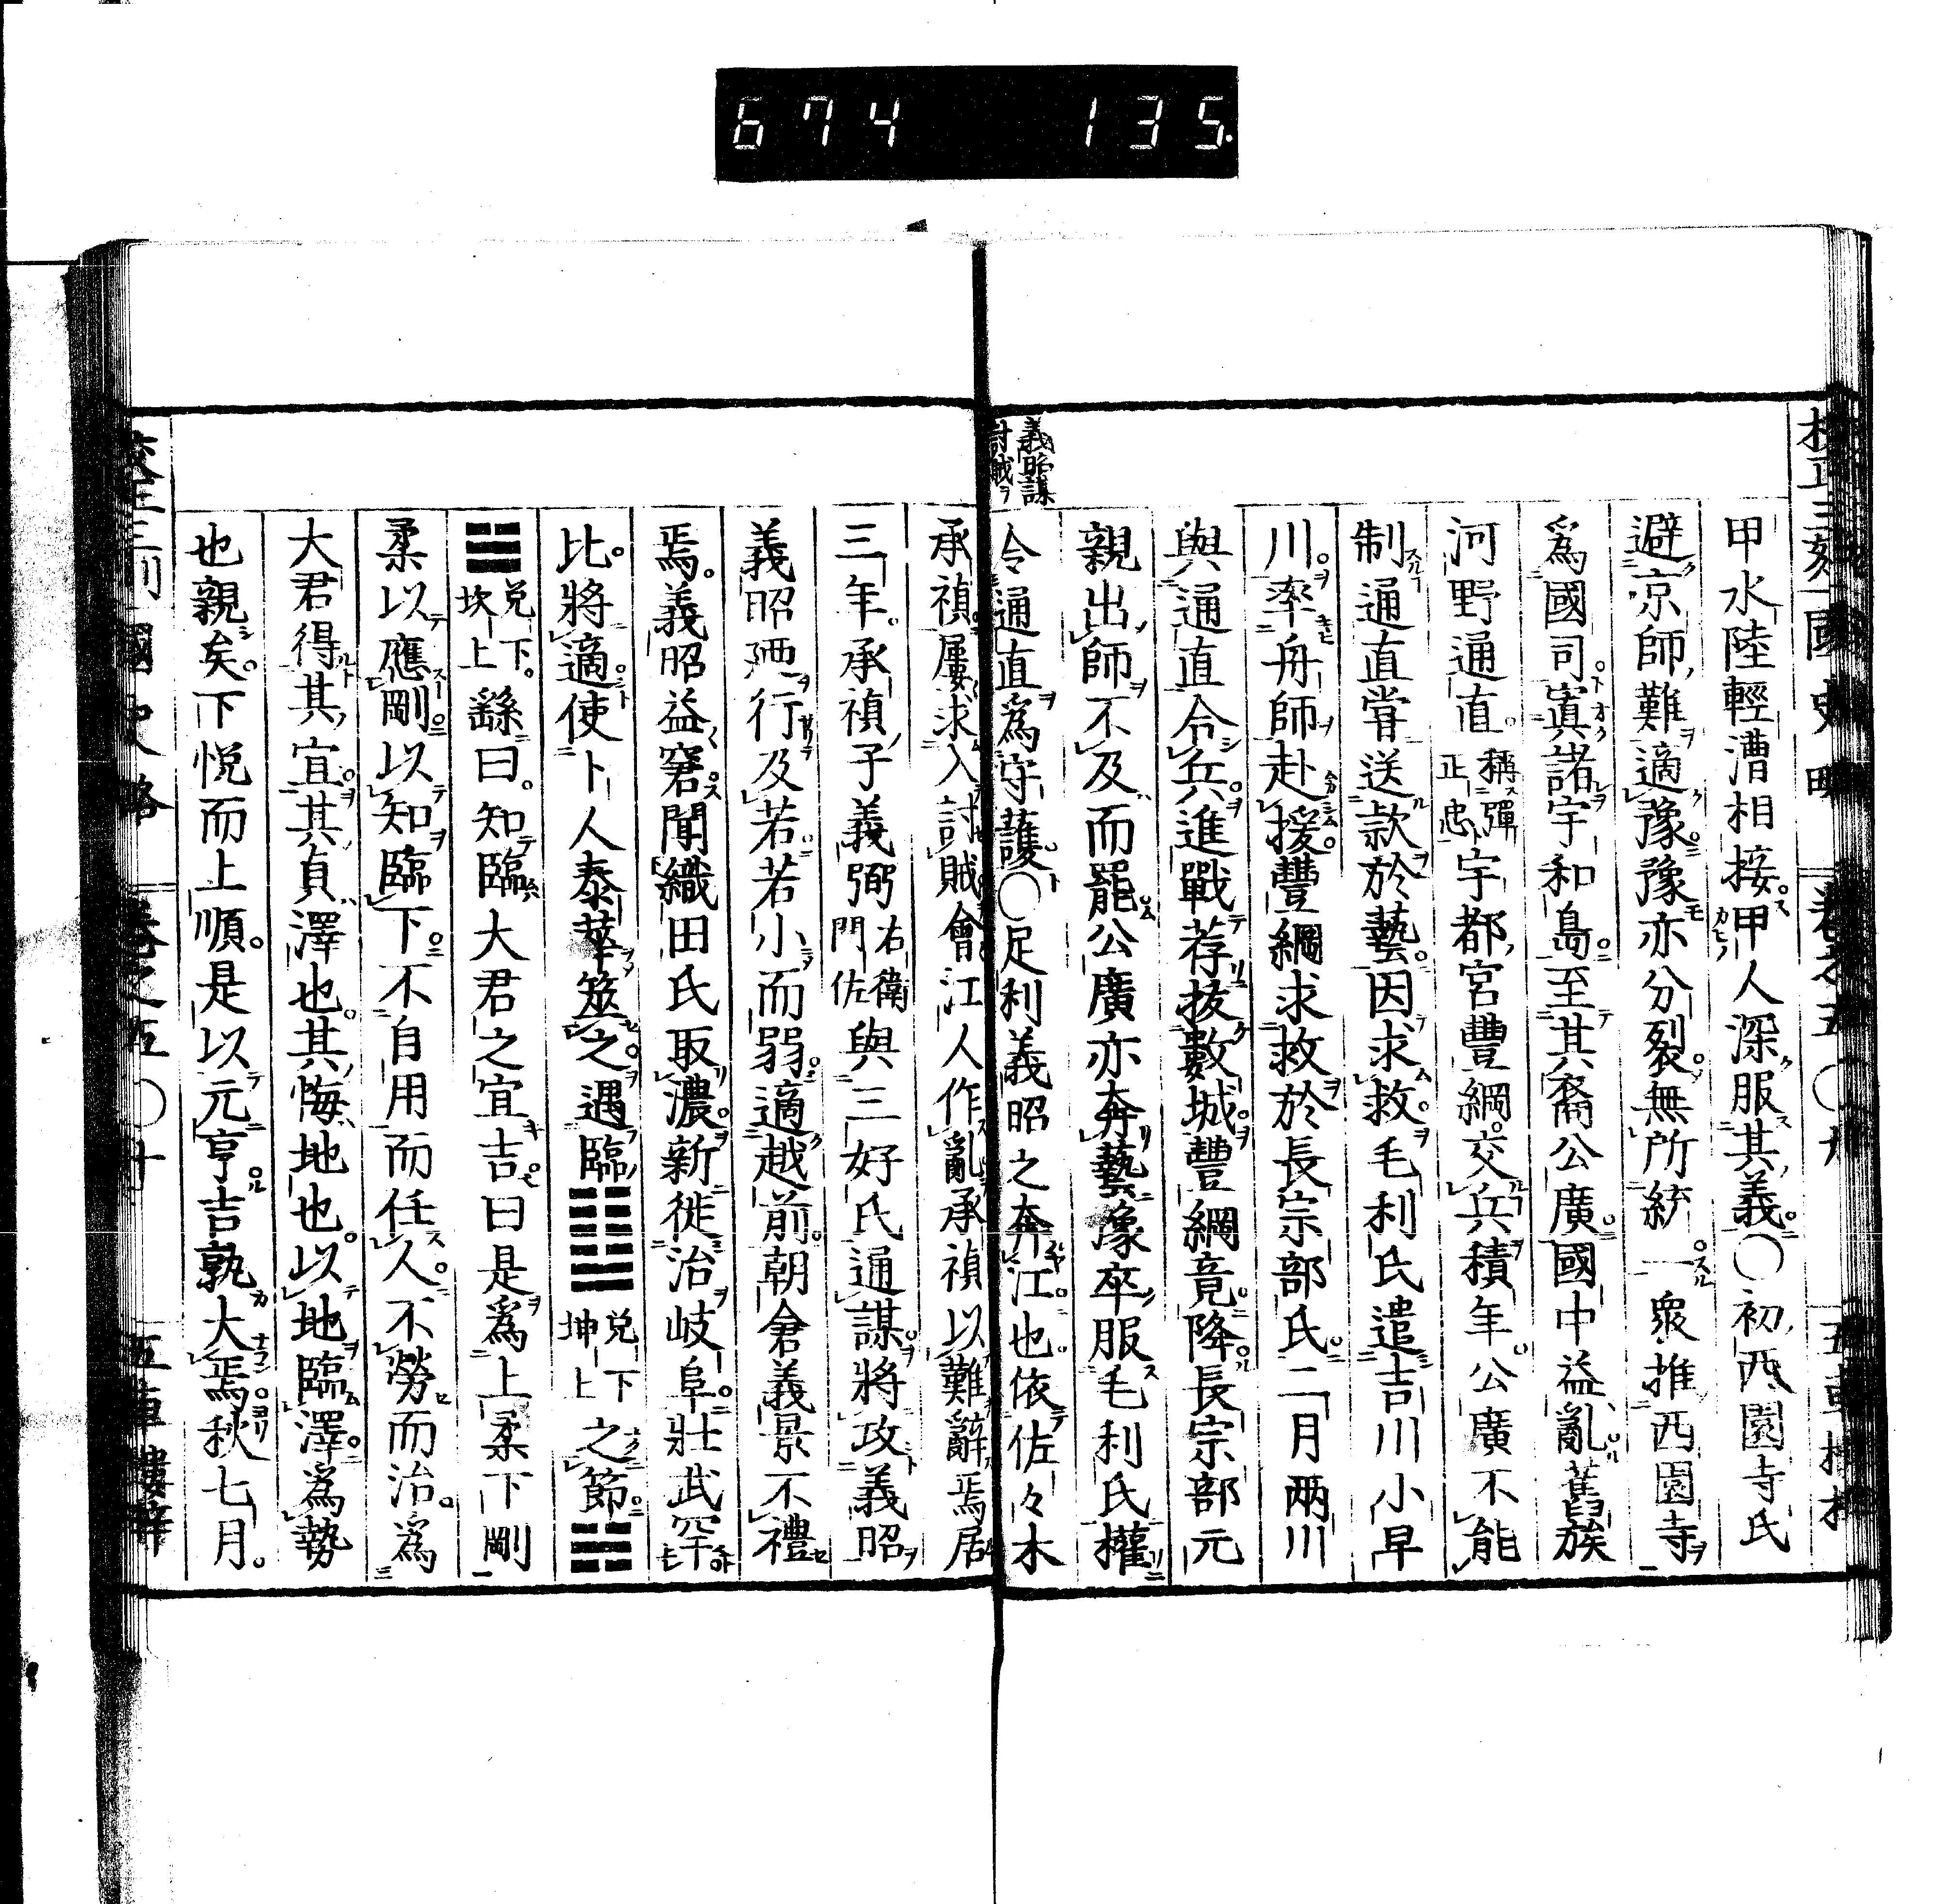 674 135
甲水陸輕漕相接甲人深服其義○初西園寺氏
避京師難適豫豫亦分裂無所統一衆推西園寺
爲國司寘諸宇和島至其裔公廣國中益亂舊族
河野通直稱彈正忠宇都宮豐綱交兵積年公廣不能
制通直甞送款於藝因求救毛利氏遣吉川小早
川率舟師赴援豐綱求救於長宗部氏二月兩川
與通直令兵進戰荐拔數城豐綱竟降長宗部元
親出師不及而罷公廣亦奔藝豫卒服毛利氏權
令通直爲守護○足利義昭之奔江也依佐々木
義昭謀
討賊
承禎屢求入討賊會江人作亂承禎以難辭焉居
三年承禎子義弼右衞門佐與三好氏通謀將攻義昭
義昭陋行及若若小而弱適越前朝倉義景不禮
焉義昭益窘聞織田氏取濃新徙治岐阜壯武罕
比將適使卜人泰華筮之遇臨䷒兌下坤上之節䷻
兌下坎上繇曰知臨大君之宜吉曰是爲上柔下剛
柔以應剛以知臨下不自用而任人不勞而治爲
大君得其宜其貞澤也其悔地也以地臨澤爲勢
也親矣下悅而上順是以元亨吉孰大焉秋七月